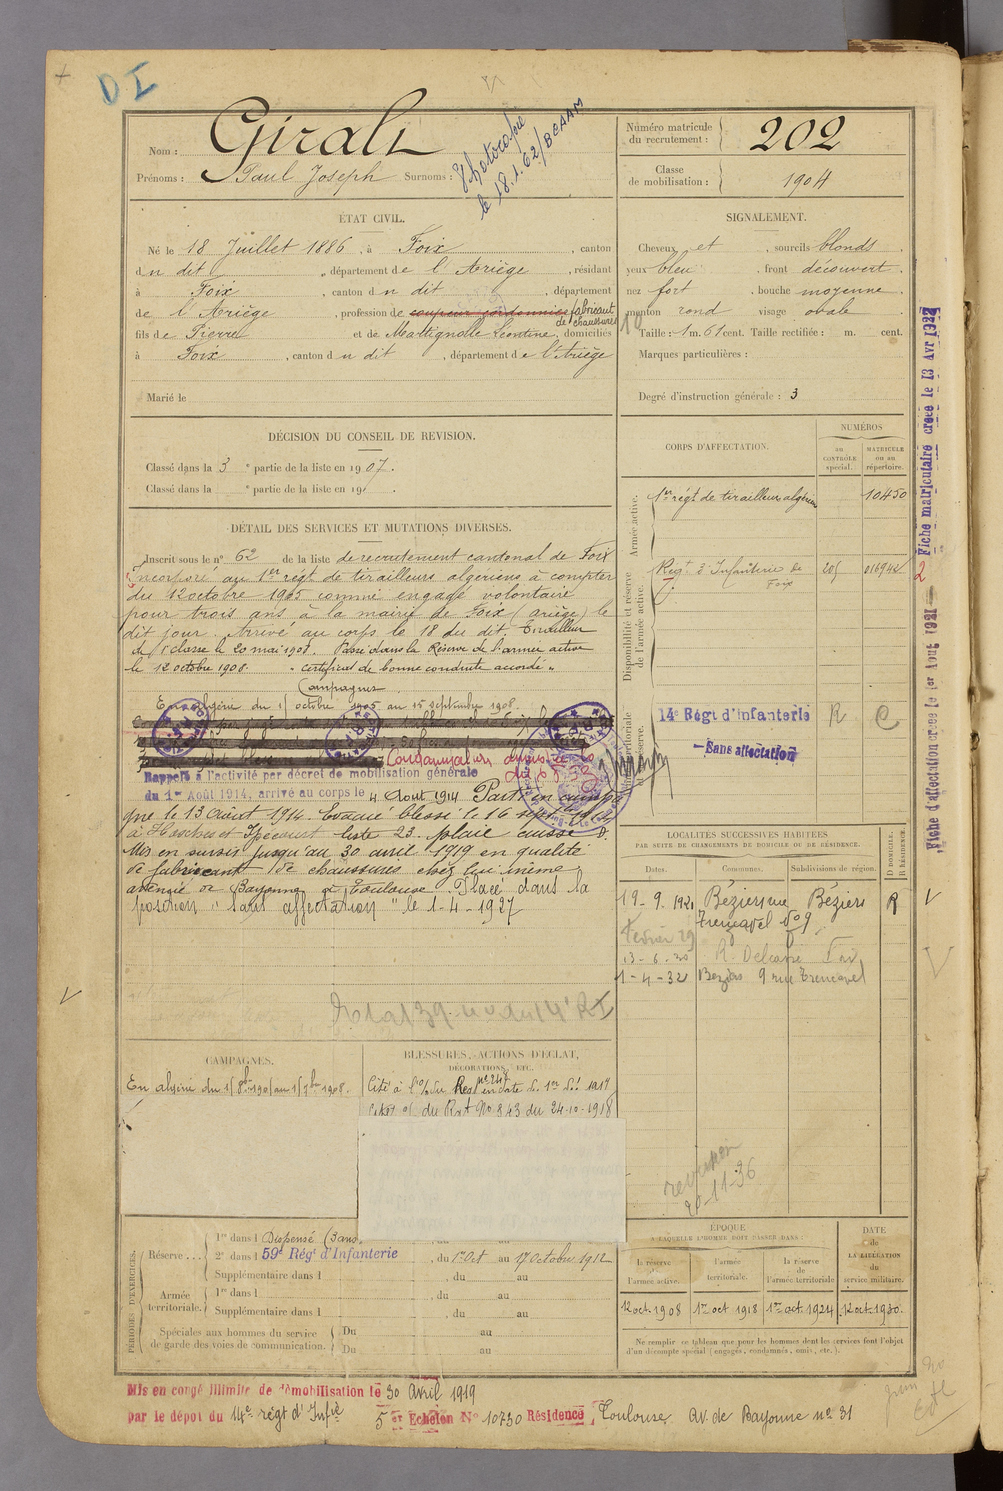 D I
Nom : Giralt
Prénoms : Paul Joseph Surnoms :
Photocopie
le 18.1.62/BCAAM
Numéro matricule
du recrutement : 202
Classe
de mobilisation : 1904
ÉTAT CIVIL.
Né le 18 Juillet 1886, à Foix, canton
dudit, département de l'Ariège, résidant
à Foix, canton dudit, département
de l'Ariège, profession de coupeur cordonnier fabricant
de chaussures
fils de Pierre et de Martignolle Léontine, domiciliés
à Foix, canton dudit, département de l'Ariège
Marié le
SIGNALEMENT.
Cheveux et, sourcils blonds.
yeux bleu, front découvert.
nez fort, bouche moyenne.
menton rond visage ovale.
Taille : 1 m. 61 cent. Taille rectifiée : m. cent.
Marques particulières :
Degré d'instruction générale : 3
DÉCISION DU CONSEIL DE REVISION.
Classé dans la 3e partie de la liste en 1907.
Classé dans la e partie de la liste en 19 .
CORPS D'AFFECTATION.
NUMÉROS
au
CONTRÔLE
spécial.
MATRICULE
ou au
répertoire.
Armée active.
1er régt de tirailleurs algériens 10450
Disponibilité et réserve
de l'armée active.
Régt d'Infanterie de
Foix
205 016944
14e Régt d'Infanterie R C
Sans affectation
DÉTAIL DES SERVICES ET MUTATIONS DIVERSES.
Inscrit sous le n° 62 de la liste de recrutement cantonal de Foix
Incorporé au 1er régt de tirailleurs algériens à compter
du 12 octobre 1905 comme engagé volontaire
pour trois ans à la mairie de Foix (ariège) le
dit jour. Arrivé au corps le 18 du dit. Tirailleur
de 1e classe le 20 mai 1907. Passé dans la Réserve de l'armée active
le 12 octobre 1908. "certificat de bonne conduite accordé"
Campagnes
En algérie du 15 octobre 1905 au 15 septembre 1908.
Rappelé à l'activité par décret de mobilisation générale
du 1er Août 1914, arrivé au corps le 4 Août 1914 Parti en campa-
gne le 13 août 1914. Evacué blessé le 16 sept 1914
liste 23. plaie cuisse D.
Mis en sursis jusqu'au 30 avril 1919 en qualité
de fabricant de chaussures chez lui même
avenue de Bayonne à Toulouse. Placé dans la
position "sans affectation" le 1-4-1927
LOCALITÉS SUCCESSIVES HABITÉES
PAR SUITE DE CHANGEMENTS DE DOMICILE OU DE RÉSIDENCE.
Dates. Communes. Subdivisions de région.
D DOMICILE.
R RÉSIDENCE.
19-9-1921 Béziers rue Béziers R
Trencavel No 9
Février 29
13-6-30 R. Delcassé Foix
1-4-32 Béziers 9 rue Trencavel
CAMPAGNES.
En algérie du 15 8bre 1905 au 15 7bre 1908.
BLESSURES, ACTIONS D'ÉCLAT,
DÉCORATIONS, ETC.
du Rgt No 843 du 24-10-1918
20-11-36
PÉRIODES D'EXERCICES.
Réserve... 1re dans l Dispensé (3 ans)
2e dans l 59e Régt d'Infanterie, du 1er Oct au 17 octobre 1912
Supplémentaire dans l , du au
Armée
territoriale. 1re dans l , du au
Supplémentaire dans l , du au
Spéciales aux hommes du service
de garde des voies de communication. Du au
Du au
ÉPOQUE
À LAQUELLE L'HOMME DOIT PASSER DANS :
la réserve
de
l'armée active.
l'armée
territoriale.
la réserve
de
l'armée territoriale
DATE
de
LA LIBÉRATION
du
service militaire.
12 oct. 1908 1er oct 1918 1er oct. 1924 12 oct. 1930.
Ne remplir ce tableau que pour les hommes dont les services font l'objet
d'un décompte spécial (engagés, condamnés, omis, etc.).
Mis en congé illimité de démobilisation le 30 Avril 1919
par le dépôt du 14e régt d'Infie 5er Echelon N° 10730 Résidence Toulouse. av. de Bayonne no 31
Fiche d'affectation créée le 1er Août 1921
Fiche matriculaire créée le 13 Avr 1922